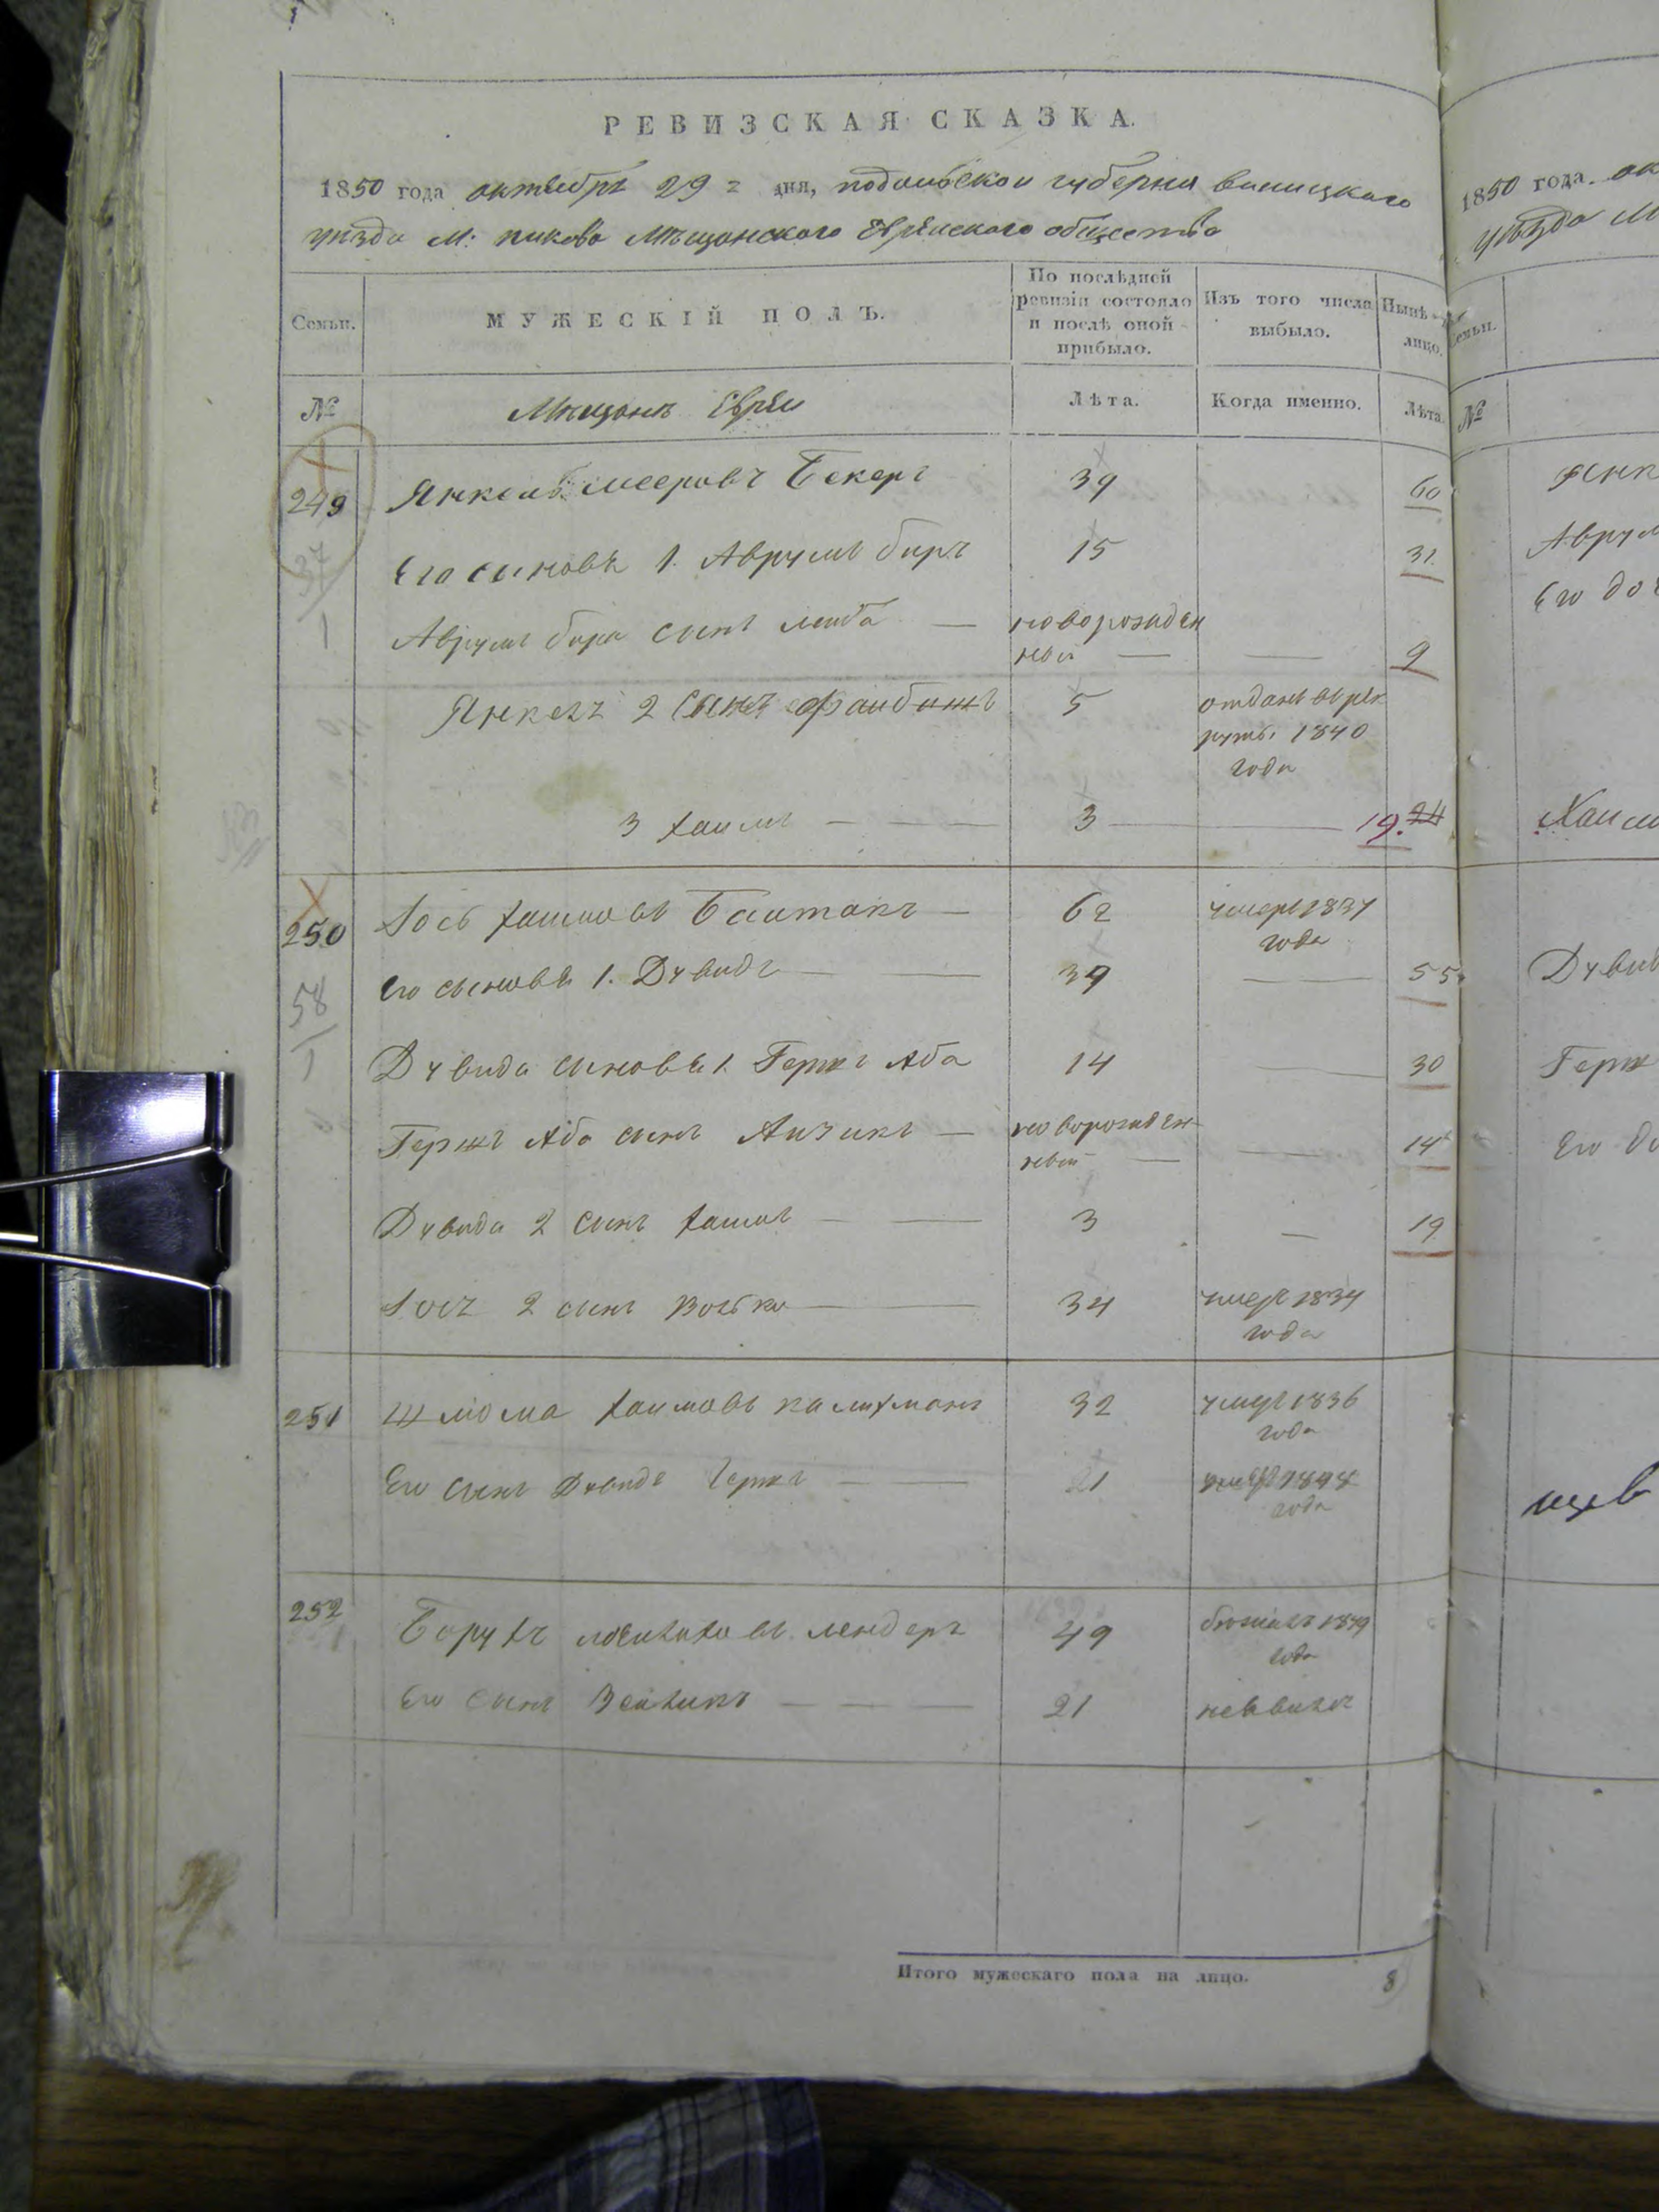 РЕВИЗСКАЯ СКАЗКА.
1850 года октября 29 г дня, подольской губерни виницкаго
уѣзда М: пикова Мѣщанского Еврейского общества
Семьи.
МУЖЕСКІЙ ПОЛЪ.
По послѣдней ревизіи состояло и послѣ оной прибыло.
Изъ того числа выбыло.
Нынѣ на лицо.
№
Мѣщанъ Евреи
Лѣта.
Когда именно.
Лѣта.
249 Янкель мееровъ Бекеръ 39 60
37
Его сыновя 1. Аврумъ биръ 15 31.
1 Аврумъ бира сынъ лейба — новорожден
ный — — 9
Янкелъ 2 сынъ 5 отданъ в рек
руты 1840
года
3 хаимъ — — — 3 — 19. 24
250 Іось хаимовъ — 62 умеръ 1837
года
58 Его сыновя 1. Дувидъ — — 39 — 55
1 Дувида сыновя 1. Гершъ Аба 14 — 30
Гершъ Аба сынъ Аизикъ — новорожден
ный — — 14
Дувида 2 сынъ хаимъ — — 3 — 19
Іосъ 2 сынъ волько — — 34 умеръ 1834
года
251 Шлюма хаимовъ калихманъ 32 умеръ 1836
года
Его сынъ Дувидъ Гершъ — — 21 умеръ
года
252 Борухъ лендеръ 49
года
Его сынъ Зейликъ — — — 21
Итого мужескаго пола на лицо. 8
1850 года. ок
уѣзда М
Семьи.
№
Янк
Аврум
Его доч
Хаим
Дувид
Герш
Его до